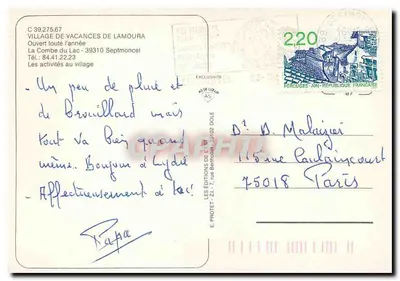 C 39.275.67
VILLAGE DE VACANCES DE LAMOURA
Ouvert toute l'année
La Combe du Lac - 39310 Septmoncel
Tél.: 84.41.22.23
Les activités au village
- Un peu de pluie et
de brouillard mais
tout va bien quand
même. Bonjour à Lydie
- Affectueusement à toi!
Papa
EXCLUSIVITÉ
LES ÉDITIONS DE L'EST
E. PROTET - Z.I. - 7, rue 39102 DOLE
2,20
PÉROUGES - AIN - RÉPUBLIQUE FRANÇAISE
Dr D.
118 rue Caulaincourt
75018 Paris
CPARAMA